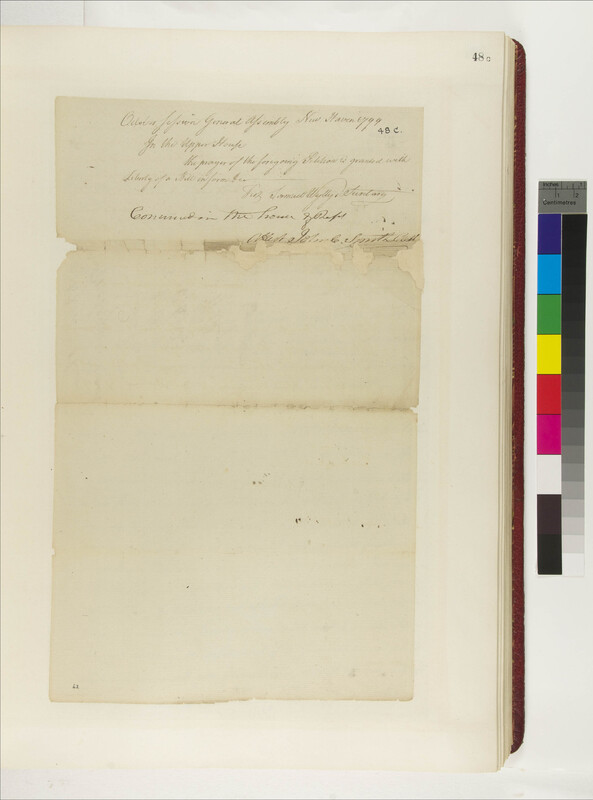 48c
October Session General Assembly New Haven 1799
48 C.
In the Upper House
the prayer of the foregoing Petition is granted with
liberty of a Bill in form &c
Test, Samuel Wyllys Secretary
Concurred in the house of Reps
Attest John C. Smith Clk
48
Inches
1
2
Centimetres